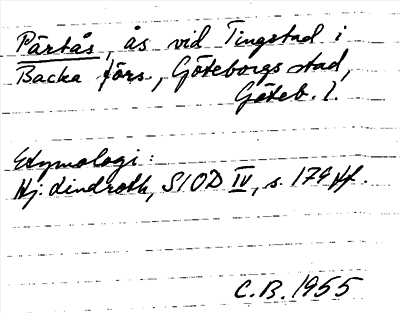 Pärtås, ås vid Tingstad i
Backa förs., Göteborgs stad,
Göteb. l.
Etymologi:
Hj. Lindroth, SIOD IV, s. 179 ff.
C.B. 1955